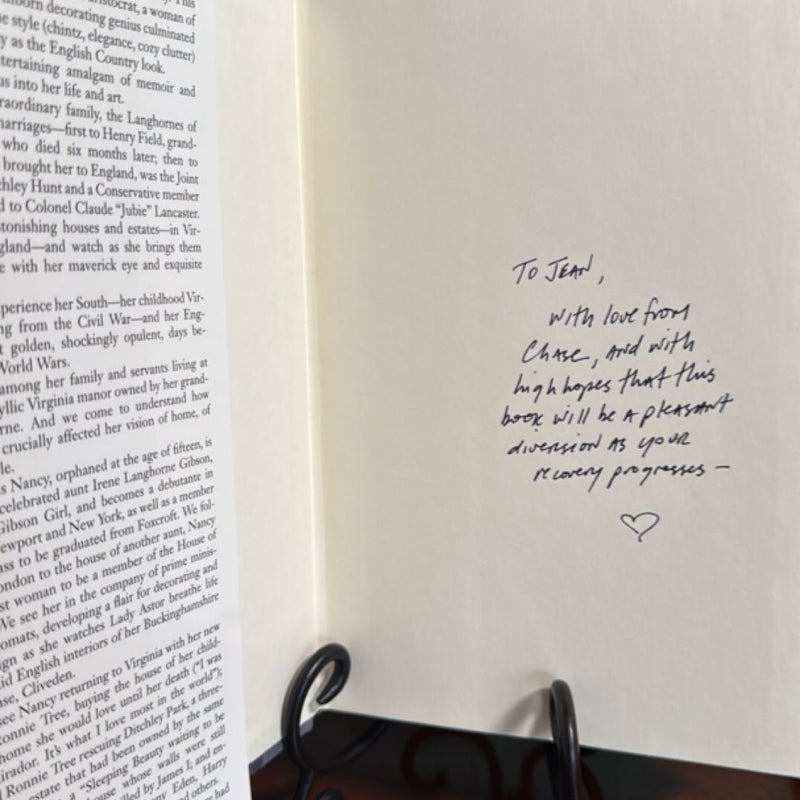 . This
born decorating genius culminated
style (chintz, elegance, cozy clutter)
y as the English Country look.
tertaining amalgam of memoir and
us into her life and art.
raordinary family, the Langhornes of
marriages—first to Henry Field, grand-
who died six months later; then to
brought her to England, was the Joint
chley Hunt and a Conservative member
d to Colonel Claude "Jubie" Lancaster.
tonishing houses and estates—in Vir-
gland—and watch as she brings them
e with her maverick eye and exquisite
perience her South—her childhood Vir-
ng from the Civil War—and her Eng-
t golden, shockingly opulent, days be-
World Wars.
among her family and servants living at
yllic Virginia manor owned by her grand-
rne. And we come to understand how
crucially affected her vision of home, of
le.
s Nancy, orphaned at the age of fifteen, is
celebrated aunt Irene Langhorne Gibson,
Gibson Girl, and becomes a debutante in
ewport and New York, as well as a member
ass to be graduated from Foxcroft. We fol-
ondon to the house of another aunt, Nancy
st woman to be a member of the House of
We see her in the company of prime minis-
omats, developing a flair for decorating and
ign as she watches Lady Astor breathe life
id English interiors of her Buckinghamshire
se, Cliveden.
see Nancy returning to Virginia with her new
onnie Tree, buying the house of her child-
home she would love until her death ("I was
irador. It's what I love most in the world");
Ronnie Tree rescuing Ditchley Park, a three-
estate that had been owned by the same
a "Sleeping Beauty waiting to be
house whose walls were still
lled by James I; and en-
ny Eden, Harry
d others.
had
To Jean,
with love from
Chase, and with
high hopes that this
book will be a pleasant
diversion as your
recovery progresses —
♡